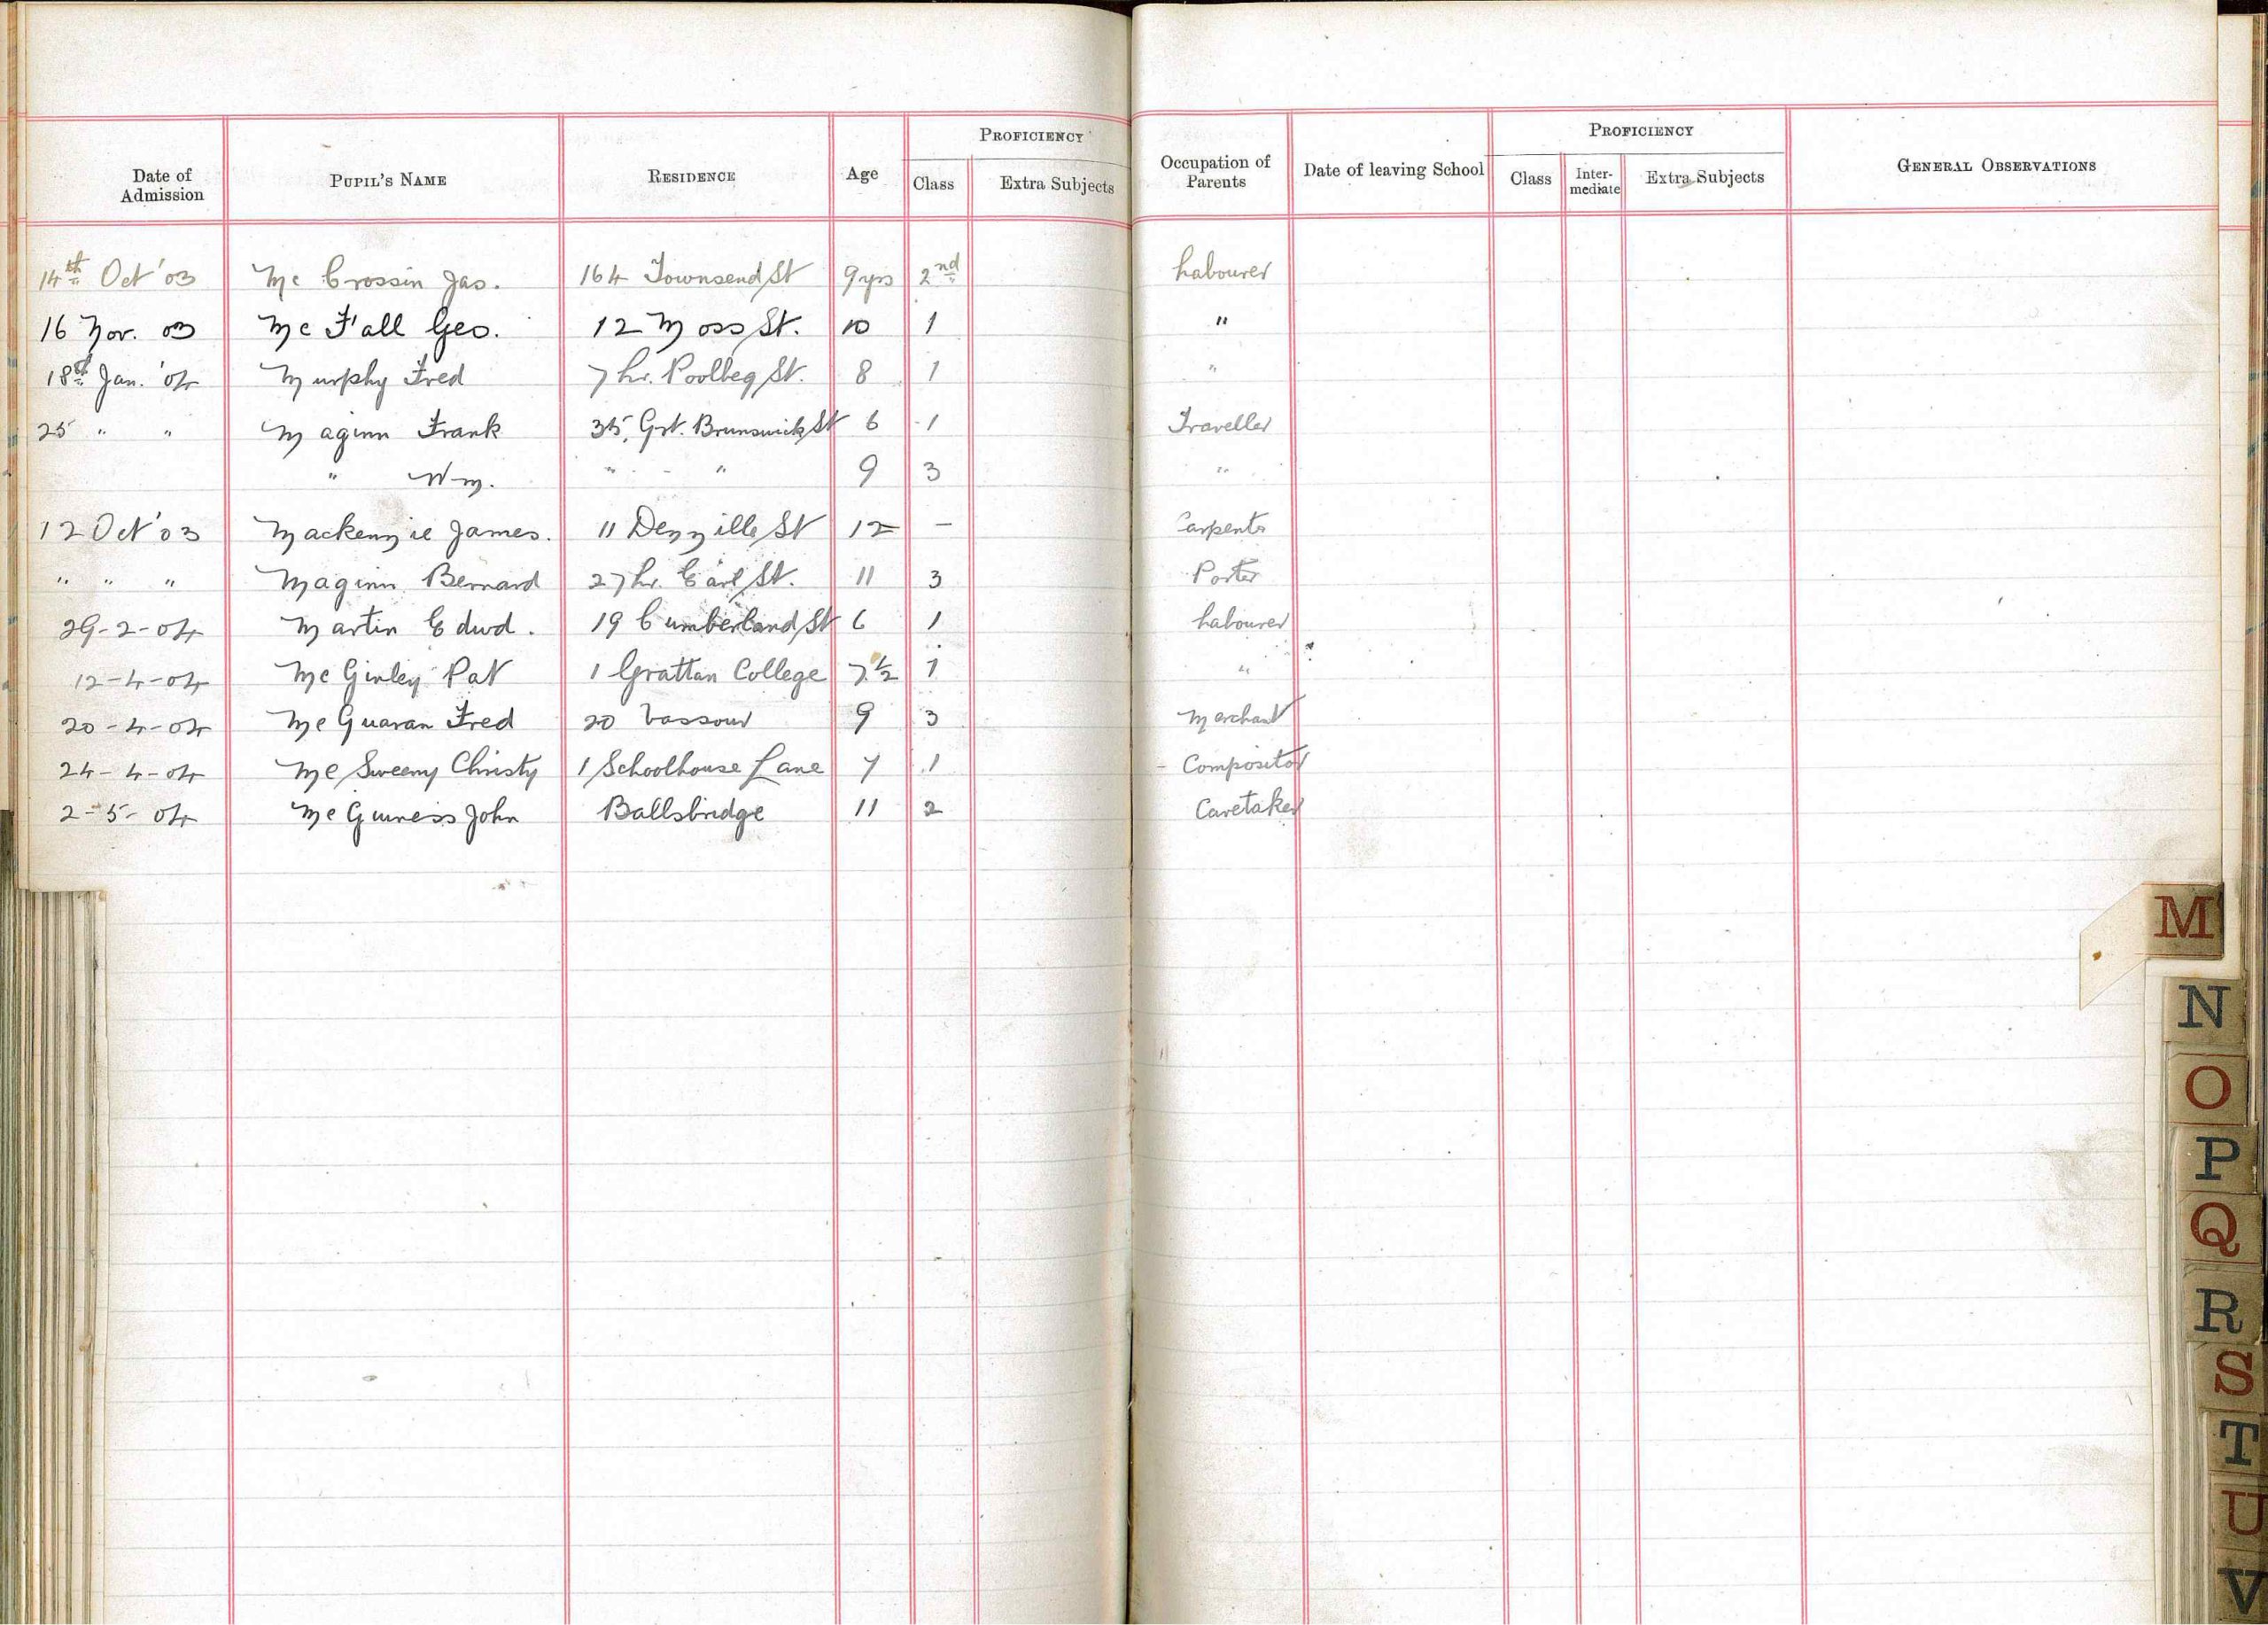 PROFICIENCY PROFICIENCY
Date of Admission PUPIL'S NAME RESIDENCE Age Class Extra Subjects Occupation of Parents Date of leaving School Class Inter-mediate Extra Subjects GENERAL OBSERVATIONS
14th Oct '03 Mc Crossin Jas. 164 Townsend St 9 yrs 2nd Labourer
16 Nov. 03 Mc Fall Geo. 12 Moss St. 10 1 "
18th Jan. '04 Murphy Fred 7 Lr. Poolbeg St. 8 1 "
25 " " Maginn Frank 35, Grt. Brunswick St 6 1 Traveller
" Wm. " - " 9 3 "
12 Oct '03 Mackenzie James. 11 Denzille St 12 - Carpenter
" " " Maginn Bernard 27 Lr. Earl St. 11 3 Porter
29-2-04 Martin Edwd. 19 Cumberland St 6 1 Labourer
12-4-04 Mc Ginley Pat 1 Grattan College 7 1/2 1 "
20-4-04 Mc Guaran Fred 20 Vassour 9 3 Merchant
24-4-04 Mc Sweeny Christy 1 Schoolhouse Lane 7 1 Compositor
2-5-04 Mc Guiness John Ballsbridge 11 2 Caretaker
M
N
O
P
Q
R
S
T
U
V